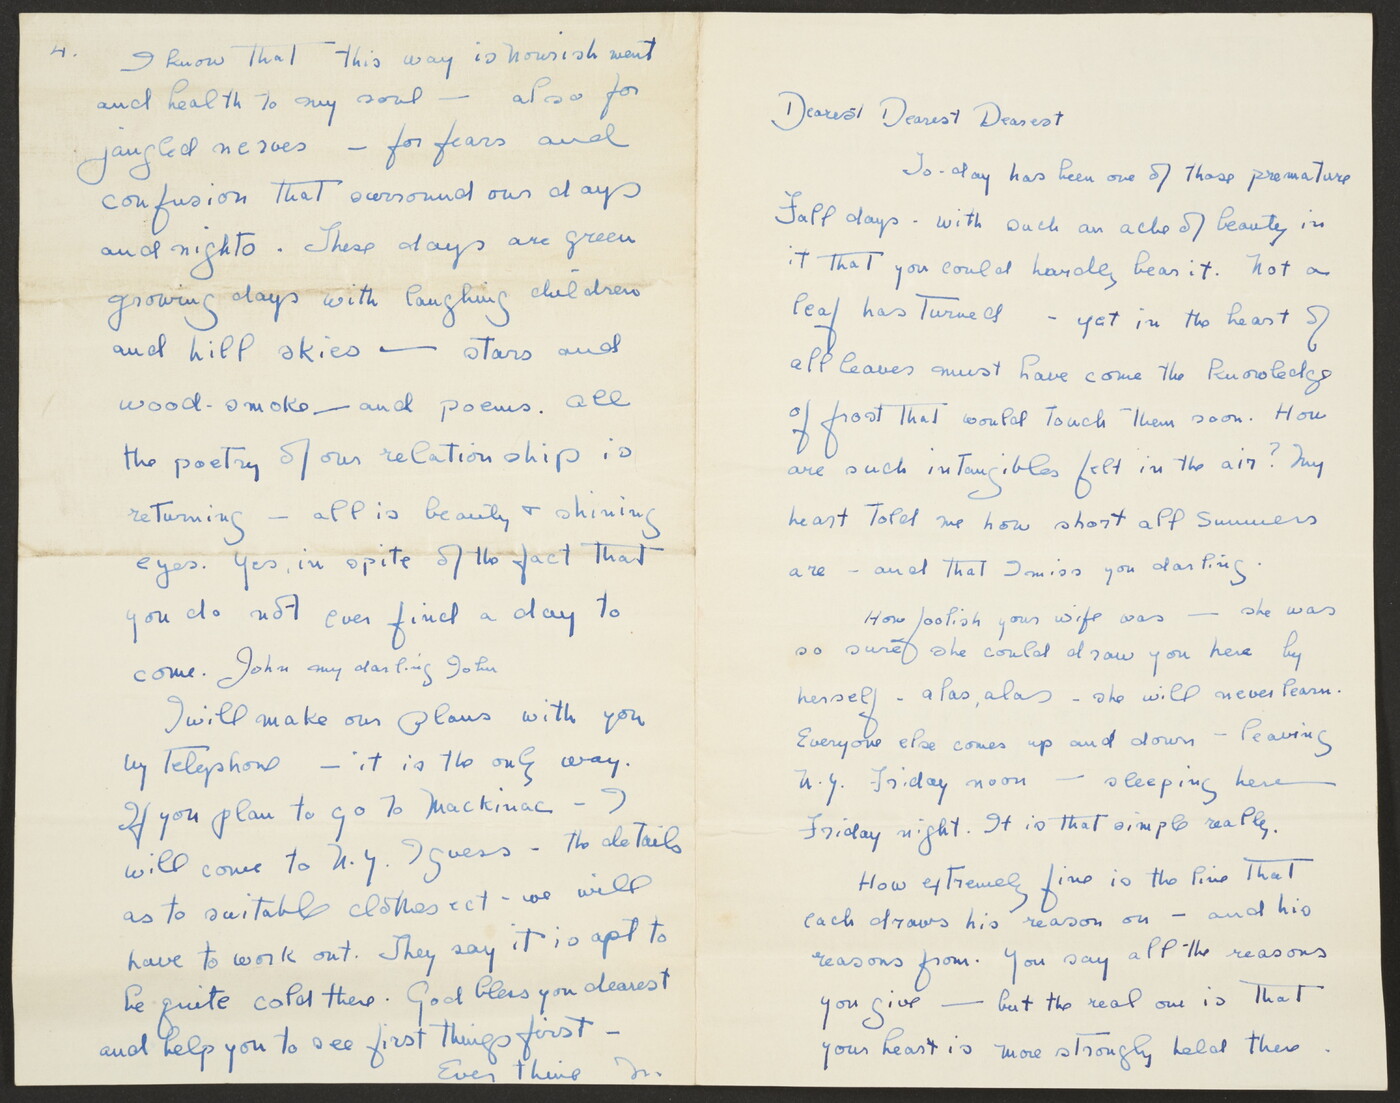 Dearest Dearest Dearest
To-day has been one of those premature
Fall days - with such an ache of beauty in
it that you could hardly bear it. Not a
leaf has turned - yet in the heart of
all leaves must have come the knowledge
of frost that would touch them soon. How
are such intangibles felt in the air? My
heart told me how short all Summers
are - and that I miss you darling.
How foolish your wife was — she was
so sure she could draw you here by
herself - alas, alas - she will never learn.
Everyone else comes up and down - leaving
N.Y. Friday noon — sleeping here —
Friday night. It is that simple really.
How extremely fine is the line that
each draws his reason on - and his
reasons from. You say all the reasons
you give — but the real one is that
your heart is more strongly held there.
4.
I know that this way is nourishment
and health to my soul — also for
jangled nerves - for fears and
confusion that surround our days
and nights. These days are green
growing days with laughing children
and hill skies — stars and
wood-smoke — and poems. All
the poetry of our relationship is
returning - all is beauty & shining
eyes. Yes, in spite of the fact that
you do not ever find a day to
come. John my darling John
I will make our plans with you
by telephone - it is the only way.
If you plan to go to Mackinac - I
will come to N.Y. I guess - the details
as to suitable clothes ect - we will
have to work out. They say it is apt to
be quite cold there. God bless you dearest
and help you to see first things first -
Ever thine